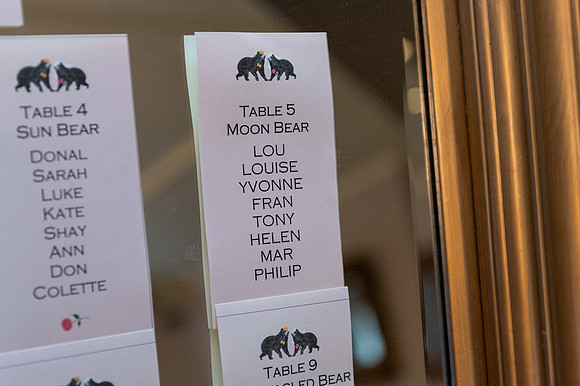 TABLE 4
SUN BEAR
DONAL
SARAH
LUKE
KATE
SHAY
ANN
DON
COLETTE
TABLE 5
MOON BEAR
LOU
LOUISE
YVONNE
FRAN
TONY
HELEN
MAR
PHILIP
TABLE 9
BEAR